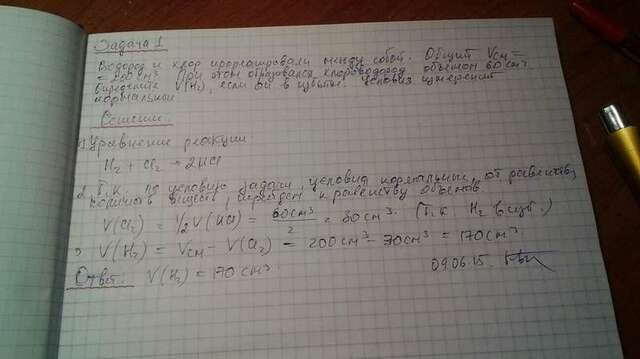 Задача 1
Водород и хлор прореагировали между собой. Общий Vсм =
= 200 см³. При этом образовался хлороводород объемом 60 см³.
Определите V(H₂), если он в избытке. Условия измерений
нормальные
Решение.
1. Уравнение реакции
H₂ + Cl₂ → 2HCl
2. Т.к. по условию задачи, условия нормальные, от равенства
количеств веществ, перейдем к равенству объемов
V(Cl₂) = 1/2 V(HCl) = 60см³/2 = 30см³. (т.к H₂ в изб.)
V(H₂) = Vсм - V(Cl₂) = 200см³ - 30см³ = 170см³
Ответ. V(H₂) = 170 см³
09.06.15.